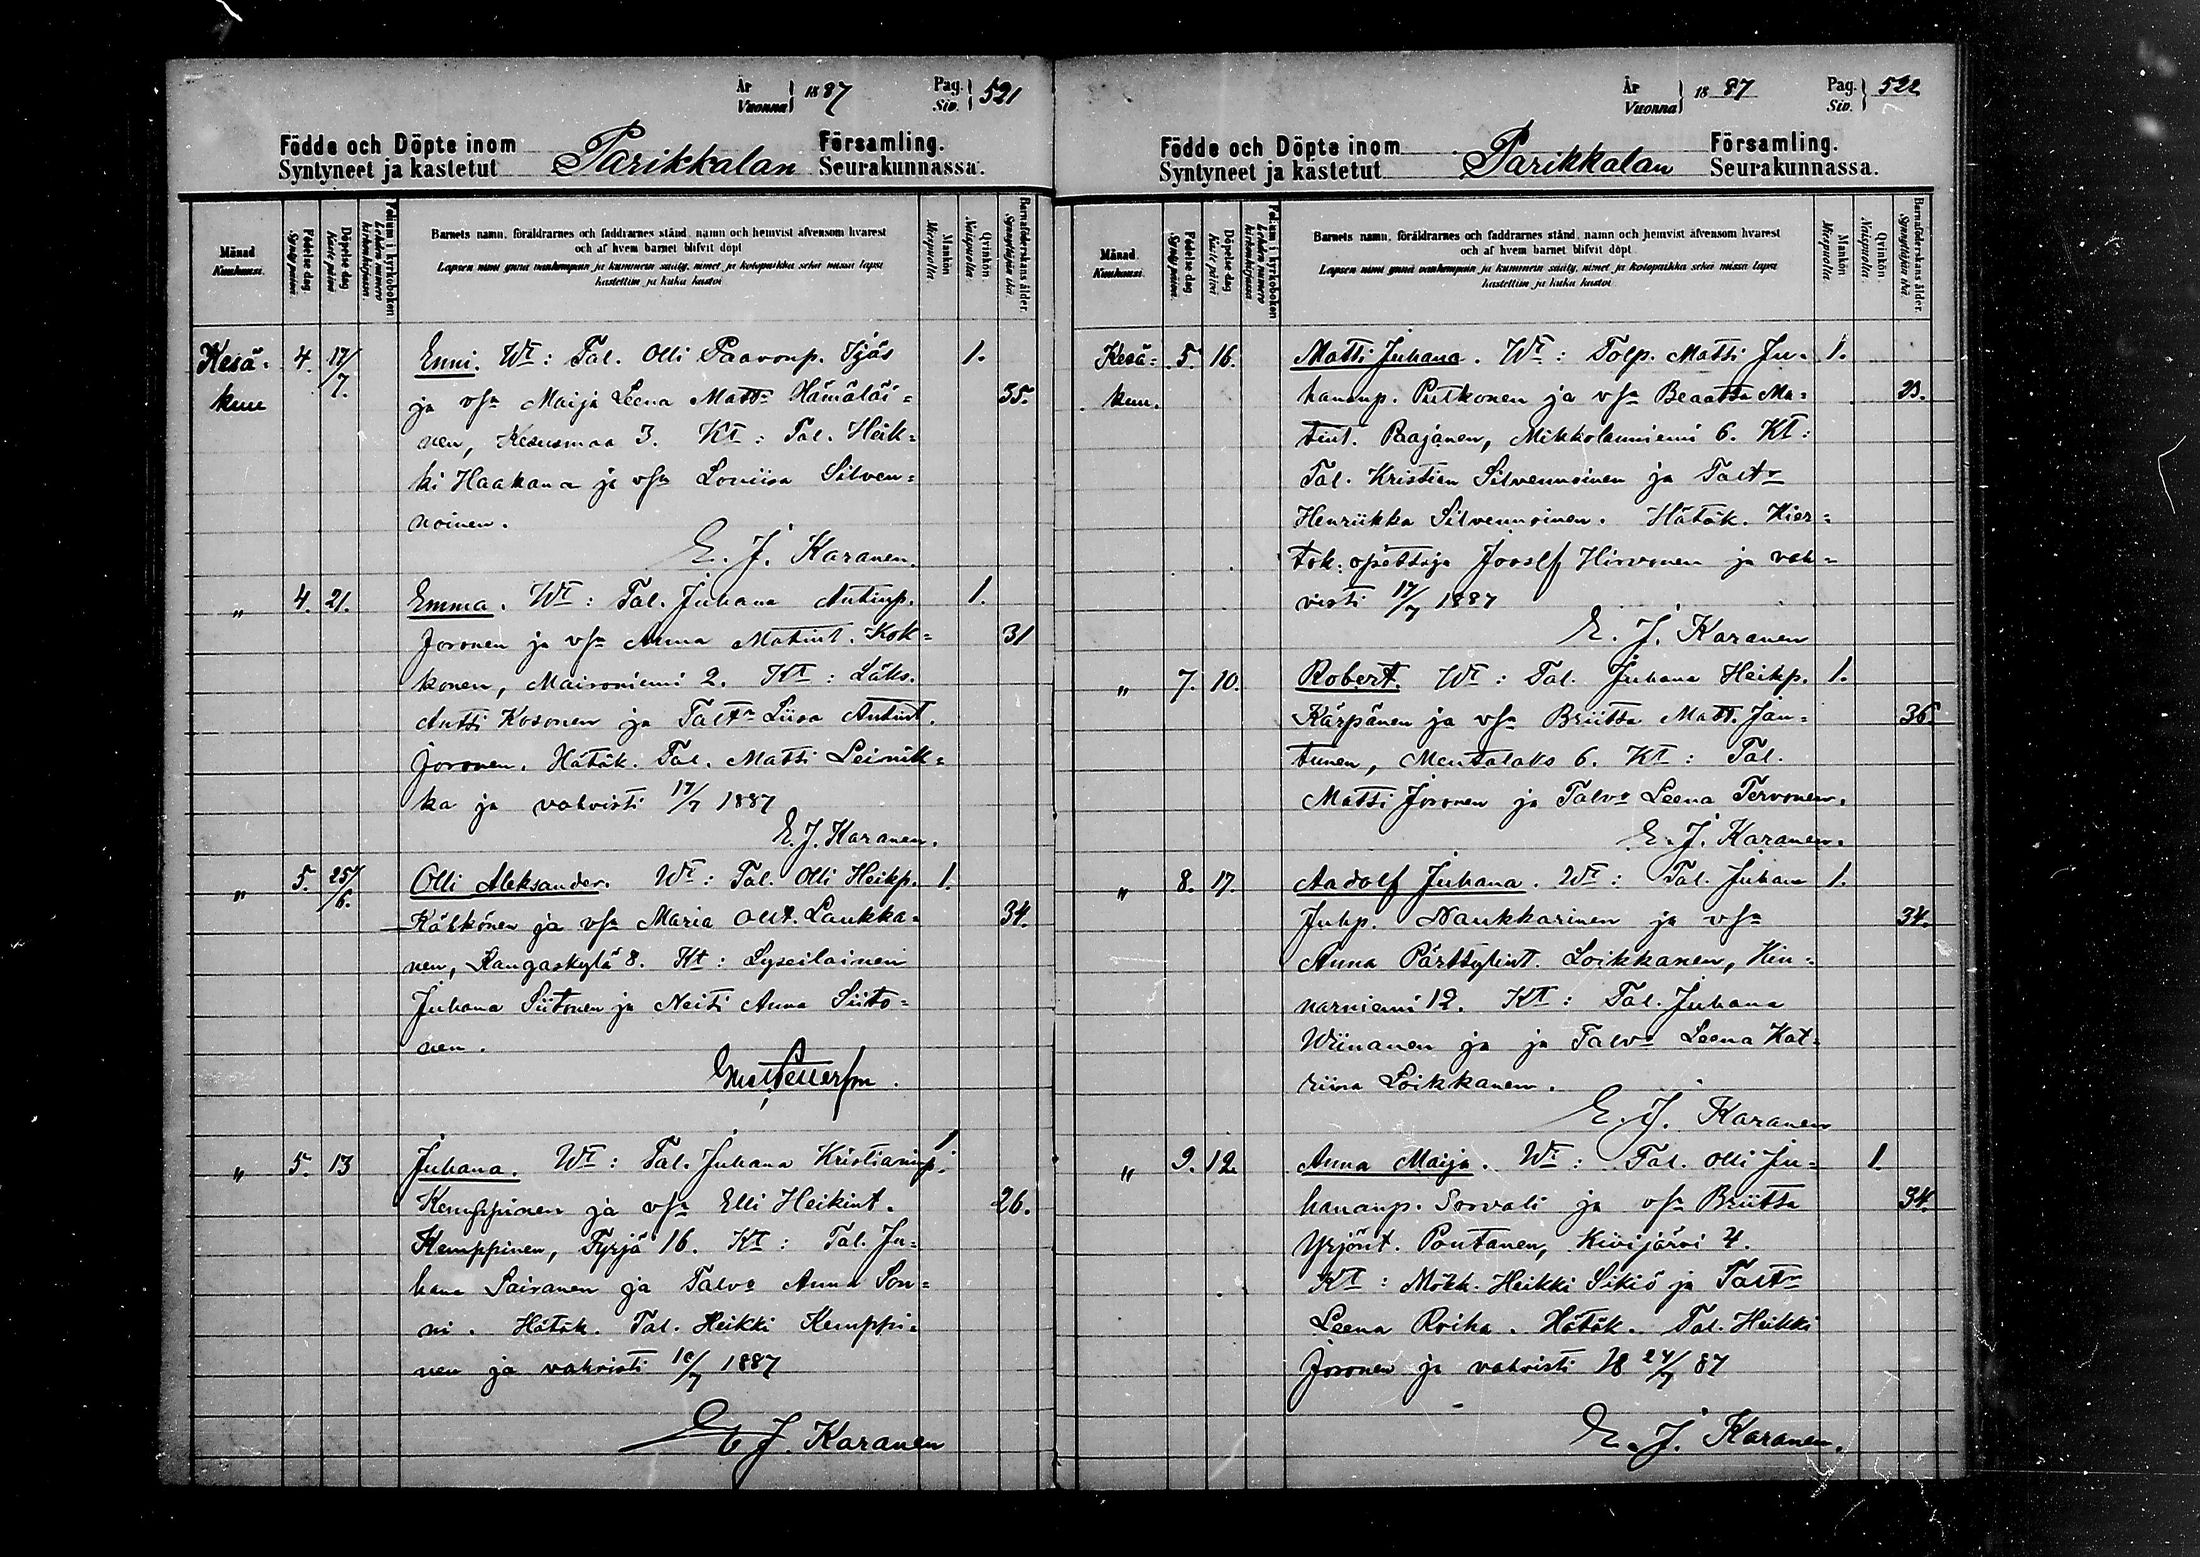 År
Vuonna } 1887
Pag.
Siv. } 521
Födde och Döpte inom
Syntyneet ja kastetut
Parikkalan
Församling.
Seurakunnassa.
Månad
Kuukausi.
Födelse dag.
Syntymäpäivä.
Döpelse dag
Kaste päivä
Folium i kyrkoboken
Lehden numero kirkonkirjassa.
Barnets namn, föräldrarnes och faddrarnes stånd, namn och hemvist äfvensom hvarest
och af hvem barnet blifvit döpt
Lapsen nimi ynnä vanhempain ja kummein sääty, nimet ja kotopaikka sekä missä lapsi
kastettiin ja kuka kastoi
Mankön
Miespuolta.
Qvinkön.
Naispuolta.
Barnaföderskans ålder.
Synnyttäjän ikä.
Kesä- 4. 17/7. Enni. Wt: Tal. Olli Paavonp. Ijäs 1.
kuu ja vsa Maija Leena Mattr Hämäläi= 35.
nen, Kesusmaa 3. Kt: Tal. Heik=
ki Haakana ja vsa Loviisa Silven=
noinen.
E. J. Karanen.
" 4. 21. Emma. Wt: Tal. Juhana Antinp. 1.
Joronen ja vsa Anna Matint. Kok= 31
konen, Maironiemi 2. Kt: Läks.
Antti Kosonen ja Taltr Liisa Antint.
Joronen. Hätäk. Tal. Matti Leinik=
ka ja vahvisti 17/7 1887
E. J. Karanen.
" 5. 25/6. Olli Aleksander. Wt: Tal. Olli Heikp. 1.
Kähkönen ja vsa Maria Ollt. Laukka= 34.
nen, Kangaskylä 8. Kt: Lyseilainen
Juhana Siitonen ja Neiti Anna Siito=
nen.
" 5. 13 Juhana. Wt: Tal. Juhana Kristianinp. 1
Kemppinen ja vsa Elli Heikint. 26.
Kemppinen, Tyrjä 16. Kt: Tal. Ju=
hana Sairanen ja Talva Anna Son=
ni. Hätäk. Tal. Heikki Kemppi=
nen ja vahvisti 10/7 1887
E. J. Karanen
År
Vuonna } 1887
Pag.
Siv. } 522
Födde och Döpte inom
Syntyneet ja kastetut
Parikkalan
Församling.
Seurakunnassa.
Månad
Kuukausi.
Födelse dag
Syntymäpäivä.
Döpelse dag
Kaste päivä
Folium i kyrkoboken.
Lehden numero kirkonkirjassa
Barnets namn, föräldrarnes och faddrarnes stånd, namn och hemvist äfvensom hvarest
och af hvem barnet blifvit döpt
Lapsen nimi ynnä vanhempain ja kummein sääty, nimet ja kotopaikka sekä missä lapsi
kastettiin ja kuka kastoi
Mankön
Miespuolta.
Qvinkön.
Naispuolta.
Barnaföderskans ålder.
Synnyttäjän ikä.
Kesä- 5. 16. Matti Juhana. Wt: Tolp. Matti Ju= 1.
kuu. hananp. Putkonen ja vsa Beaatta Ma= 23.
tint. Paajanen, Mikkolanniemi 6. Kt:
Tal. Kristian Silvennoinen ja Taltr
Henriikka Silvennoinen. Hätäk. Kier=
tok. opettaja Joosef Hirvonen ja vah=
visti 17/7 1887
E. J. Karanen
" 7. 10. Robert. Wt: Tal. Juhana Heikp. 1.
Kärpänen ja vsa Briitta Matt. Jan= 36.
tunen, Mentalaks 6. Kt: Tal.
Matti Joronen ja Talva Leena Tervonen.
E. J. Karanen.
" 8. 17. Aadolf Juhana. Wt: Tal. Juhana 1.
Juhp. Naukkarinen ja vsa 34.
Anna Pärttylint. Loikkanen, Kin=
narniemi 12. Kt: Tal. Juhana
Wiinanen ja ja Talva Leena Kat=
riina Loikkanen.
E. J. Karanen
" 9. 12. Anna Maija. Wt: Tal. Olli Ju= 1.
hananp. Sorvali ja vsa Briitta 34.
Yrjönt. Pontanen, Kivijärvi 4.
Kt: Mökk. Heikki Sikiö ja Taltr
Leena Roiha. Hätäk. Tal. Heikki
Joronen ja vahvisti 18 24/7 87
E. J. Karanen.